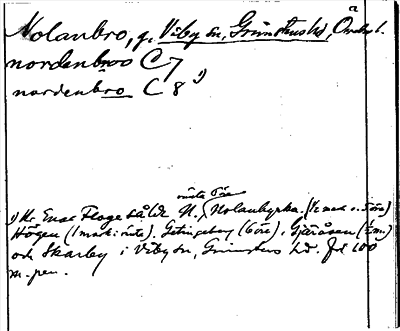 Nolanbro, g. Viby sn, Grimstens hd, Örebro l.
nordenbroo C 7
nordenbro C 8 ¹)
¹) Kr Enar Floge sålde N. Nolanbyrka. (½ mark o. 5 öre)
Högen (1 mark: ränta). Getingeberg (6 öre), Gjäråsen (½ m.)
och Skarby i Viby sn, Grimstens hd. för 100
m. pen.